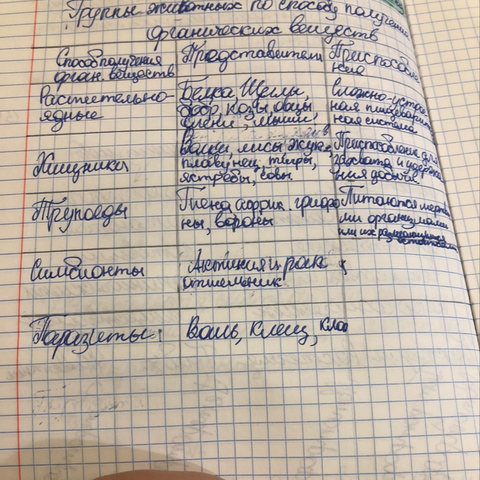 Группы животных по способу получения
органических веществ
Способ получения орган. веществ
Представители
Приспособле
Растительно-
ядные
Белка
бобр, козы, овцы,
олени, мыши,
Сложно-устро
ная пищеваритель
ная система
Хищники
Волки, лисы жук-
плавунец, тигры,
ястребы, совы.
Приспособление для
захвата и удержа
ния добычи
Трупоеды
Гиена африк. грифо
ны, вороны
Питаются мертвы
ми организмами
или их
Симбионты
Актиния и рак
отшельник
Паразиты:
Вошь, клещ, кло